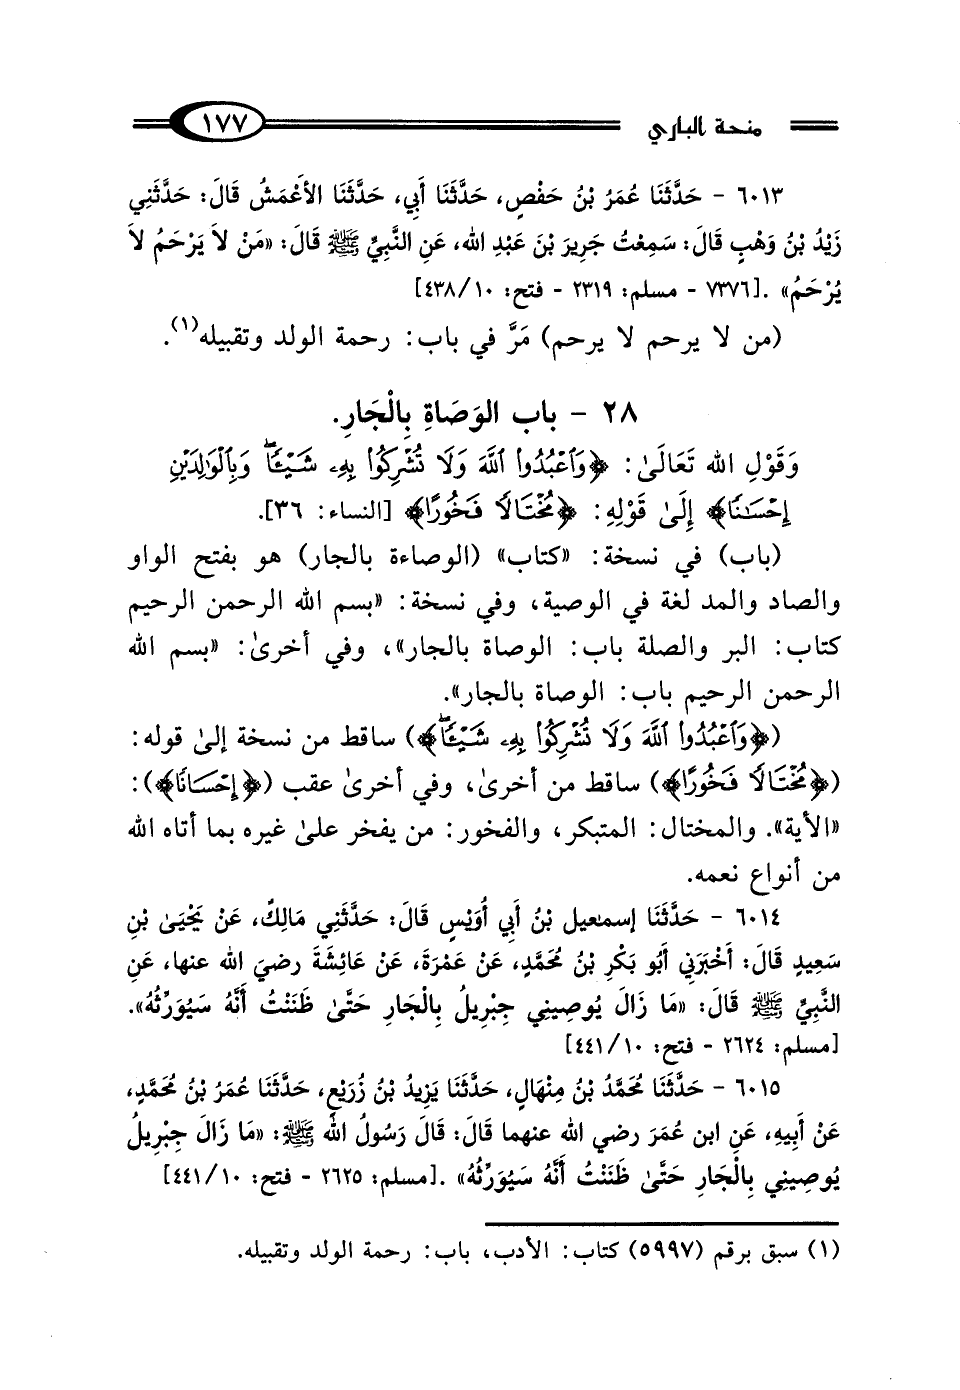 منحة الباري ١٧٧
٦٠١٣ - حَدَّثَنَا عُمَرُ بْنُ حَفْصٍ، حَدَّثَنَا أَبِي، حَدَّثَنَا الأَعْمَشُ قَالَ: حَدَّثَنِي
زَيْدُ بْنُ وَهْبٍ قَالَ: سَمِعْتُ جَرِيرَ بْنَ عَبْدِ الله، عَنِ النَّبِيِّ ﷺ قَالَ: «مَنْ لاَ يَرْحَمُ لاَ
يُرْحَمُ» .[٧٣٧٦ - مسلم: ٢٣١٩ - فتح: ٤٣٨/١٠]
(من لا يرحم لا يرحم) مَرَّ في باب: رحمة الولد وتقبيله(١).
٢٨ - باب الوَصَاةِ بِالْجَارِ.
وَقَوْلِ الله تَعَالَىٰ: ﴿وَٱعْبُدُوا۟ ٱللَّهَ وَلَا تُشْرِكُوا۟ بِهِۦ شَيْـًٔاۖ وَبِٱلْوَٰلِدَيْنِ
إِحْسَٰنًا﴾ إِلَىٰ قَوْلِهِ: ﴿مُخْتَالًا فَخُورًا﴾ [النساء: ٣٦].
(باب) في نسخة: «كتاب» (الوصاءة بالجار) هو بفتح الواو
والصاد والمد لغة في الوصية، وفي نسخة: «بسم الله الرحمن الرحيم
كتاب: البر والصلة باب: الوصاة بالجار»، وفي أخرىٰ: «بسم الله
الرحمن الرحيم باب: الوصاة بالجار».
(﴿وَٱعْبُدُوا۟ ٱللَّهَ وَلَا تُشْرِكُوا۟ بِهِۦ شَيْـًٔاۖ﴾) ساقط من نسخة إلىٰ قوله:
(﴿مُخْتَالًا فَخُورًا﴾) ساقط من أخرىٰ، وفي أخرىٰ عقب (﴿إِحْسَانًا﴾):
«الأية». والمختال: المتبكر، والفخور: من يفخر علىٰ غيره بما أتاه الله
من أنواع نعمه.
٦٠١٤ - حَدَّثَنَا إسمٰعيل بْنُ أَبِي أُوَيْسٍ قَالَ: حَدَّثَنِي مَالِكٌ، عَنْ يَحْيَىٰ بْنِ
سَعِيدٍ قَالَ: أَخْبَرَنِي أَبُو بَكْرِ بْنُ مُحَمَّدٍ، عَنْ عَمْرَةَ، عَنْ عَائِشَةَ رضيَ الله عنها، عَنِ
النَّبِيِّ ﷺ قَالَ: «مَا زَالَ يُوصِينِي جِبْرِيلُ بِالْجَارِ حَتَّىٰ ظَنَنْتُ أَنَّهُ سَيُوَرِّثُهُ».
[مسلم: ٢٦٢٤ - فتح: ٤٤١/١٠]
٦٠١٥ - حَدَّثَنَا مُحَمَّدُ بْنُ مِنْهَالٍ، حَدَّثَنَا يَزِيدُ بْنُ زُرَيْعٍ، حَدَّثَنَا عُمَرُ بْنُ مُحَمَّدٍ،
عَنْ أَبِيهِ، عَنِ ابن عُمَرَ رضي الله عنهما قَالَ: قَالَ رَسُولُ اللهِ ﷺ: «مَا زَالَ جِبْرِيلُ
يُوصِينِي بِالْجَارِ حَتَّىٰ ظَنَنْتُ أَنَّهُ سَيُوَرِّثُهُ» .[مسلم: ٢٦٢٥ - فتح: ٤٤١/١٠]
(١) سبق برقم (٥٩٩٧) كتاب: الأدب، باب: رحمة الولد وتقبيله.